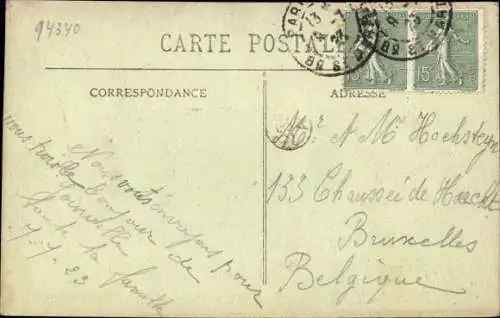 94340
CARTE POSTALE
CORRESPONDANCE
ADRESSE
15
15
Nous vous envoyons pour
vous bonjour de
Joinville
toute la famille
7.7.23
Mr et Mme Hochsteyn
133 Chaussée de Haecht
Bruxelles
Belgique